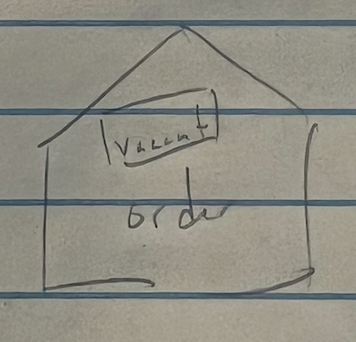 Vacant
order